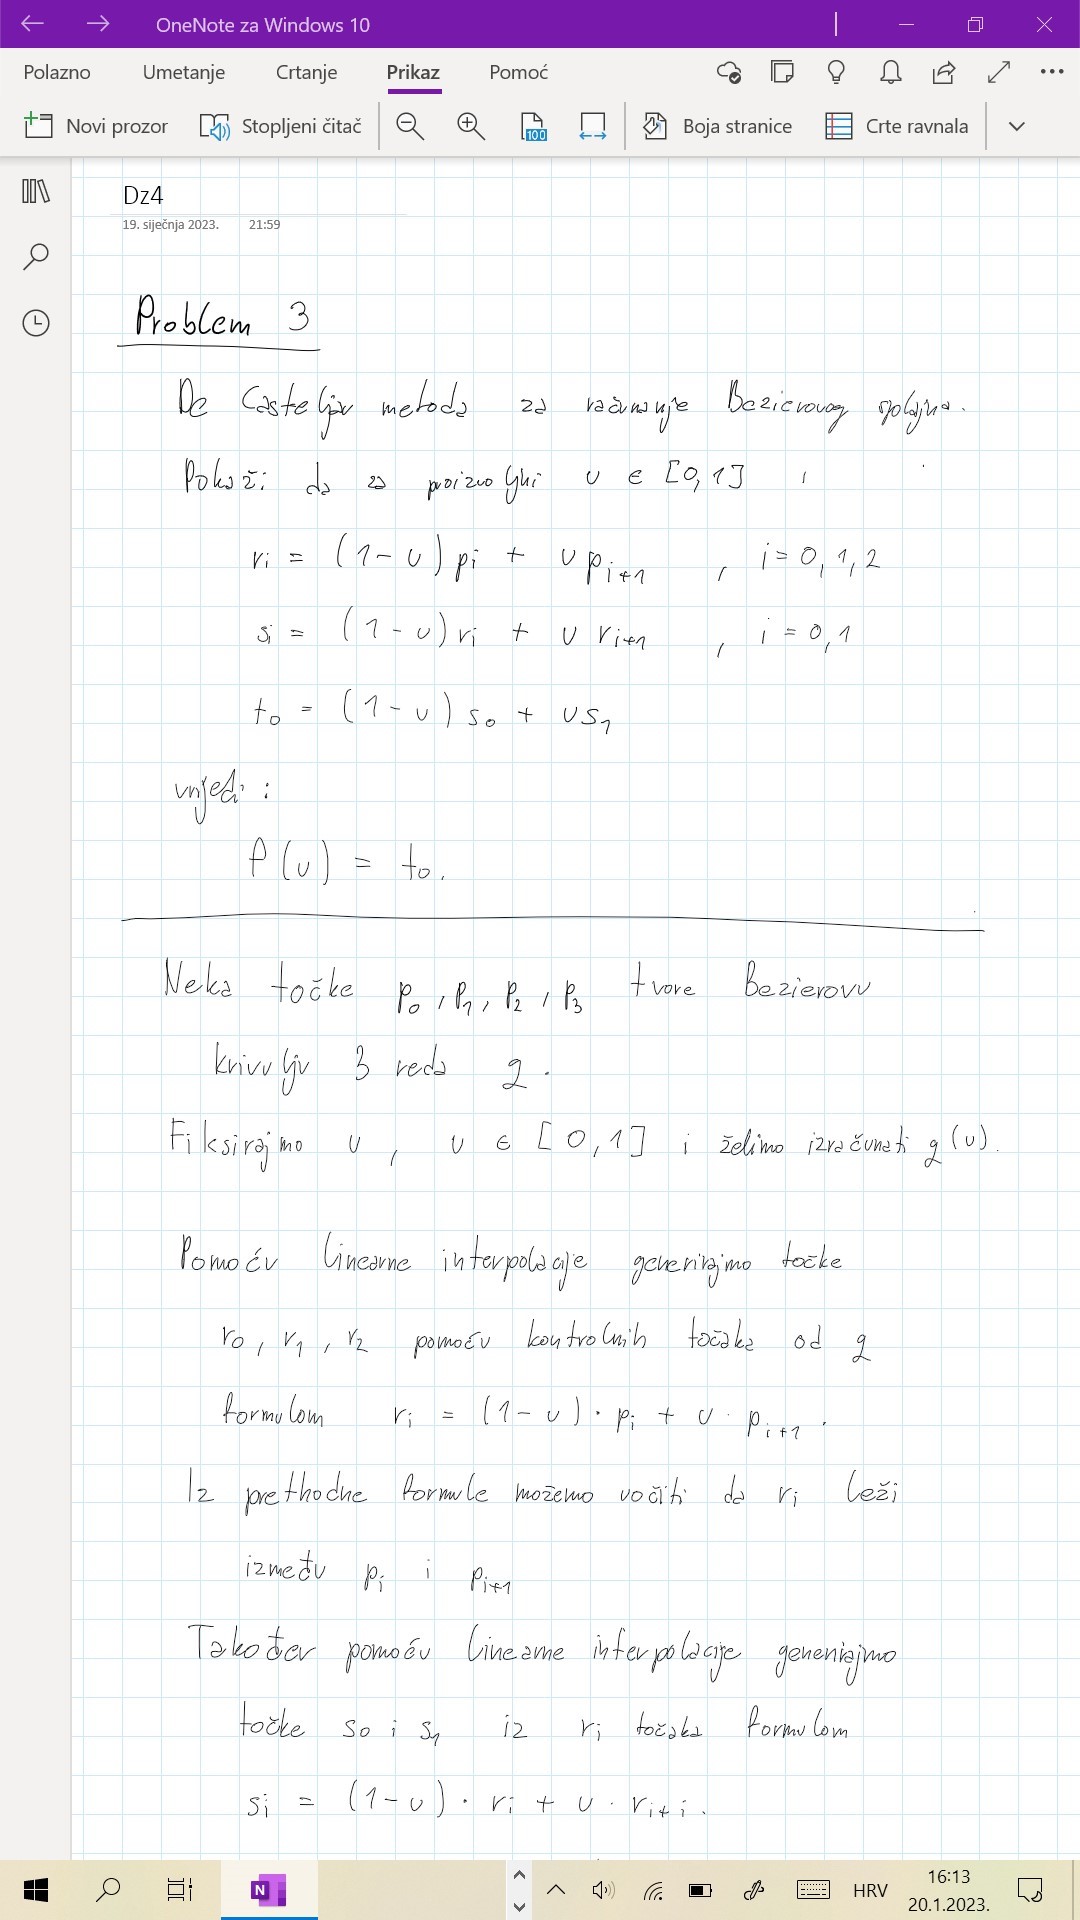 OneNote za Windows 10
Polazno Umetanje Crtanje Prikaz Pomoć
Novi prozor Stopljeni čitač 100 Boja stranice Crte ravnala
Dz4
19. siječnja 2023. 21:59
Problem 3
De Casteljau metoda za računanje Bezierovog splajna.
Pokaži da za proizvoljni u ∈ [0,1] i
ri = (1-u) pi + u pi+1 , i = 0, 1, 2
si = (1-u) ri + u ri+1 , i = 0, 1
t0 = (1-u) s0 + u s1
vrijedi :
f(u) = t0.
Neka točke p0, p1, p2, p3 tvore Bezierovu
krivulju 3 reda g.
Fiksirajmo u, u ∈ [0,1] i želimo izračunati g(u).
Pomoću linearne interpolacije generirajmo točke
r0, r1, r2 pomoću kontrolnih točaka od g
formulom ri = (1-u) · pi + u · pi+1.
Iz prethodne formule možemo uočiti da ri leži
između pi i pi+1
Također pomoću linearne interpolacije generirajmo
točke s0 i s1 iz ri točaka formulom
si = (1-u) · ri + u · ri+i.
N HRV 16:13
20.1.2023.